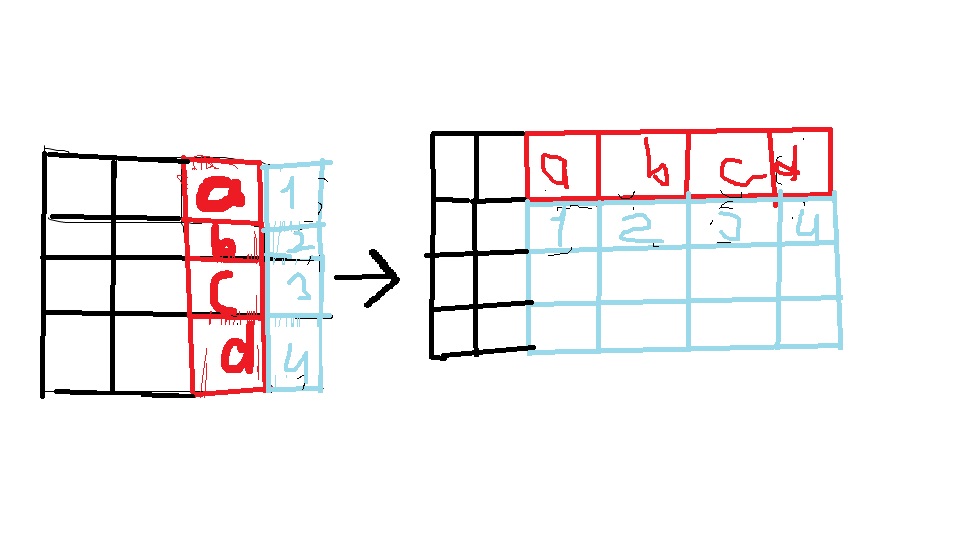 a 1
b 2
c 3
d 4
a b c d
1 2 3 4